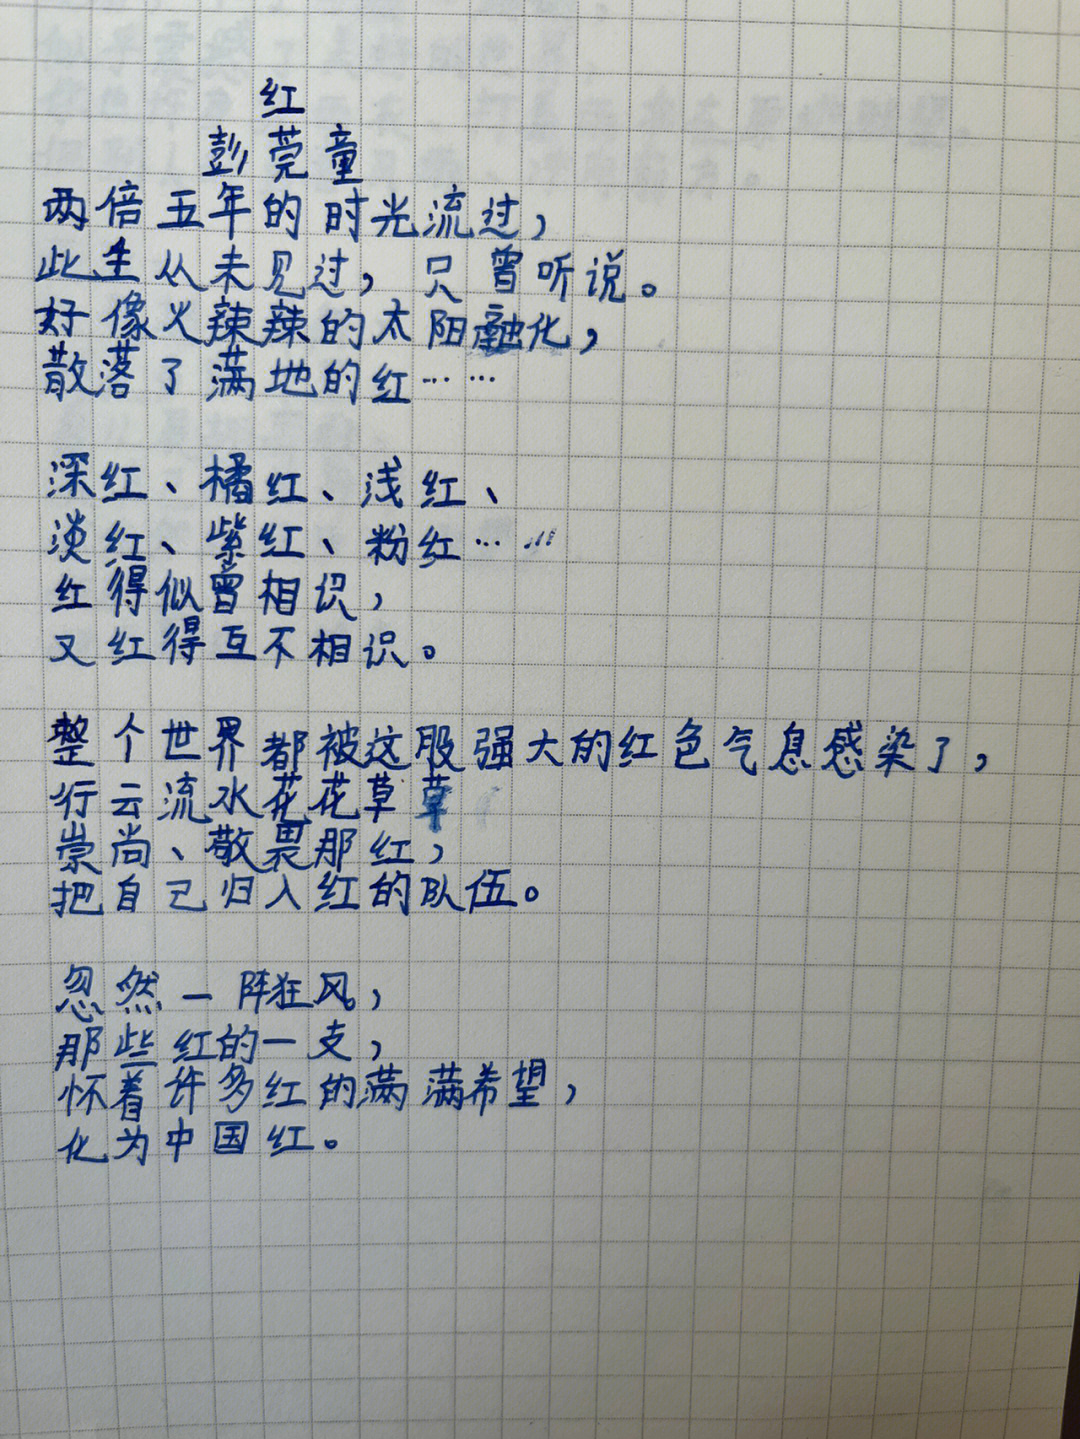 红
彭莞童
两倍五年的时光流过，
此生从未见过，只曾听说。
好像火辣辣的太阳融化，
散落了满地的红……
深红、橘红、浅红、
淡红、紫红、粉红……
红得似曾相识，
又红得互不相识。
整个世界都被这股强大的红色气息感染了，
行云流水花花草草
崇尚、敬畏那红，
把自己归入红的队伍。
忽然一阵狂风，
那些红的一支，
怀着许多红的满满希望，
化为中国红。